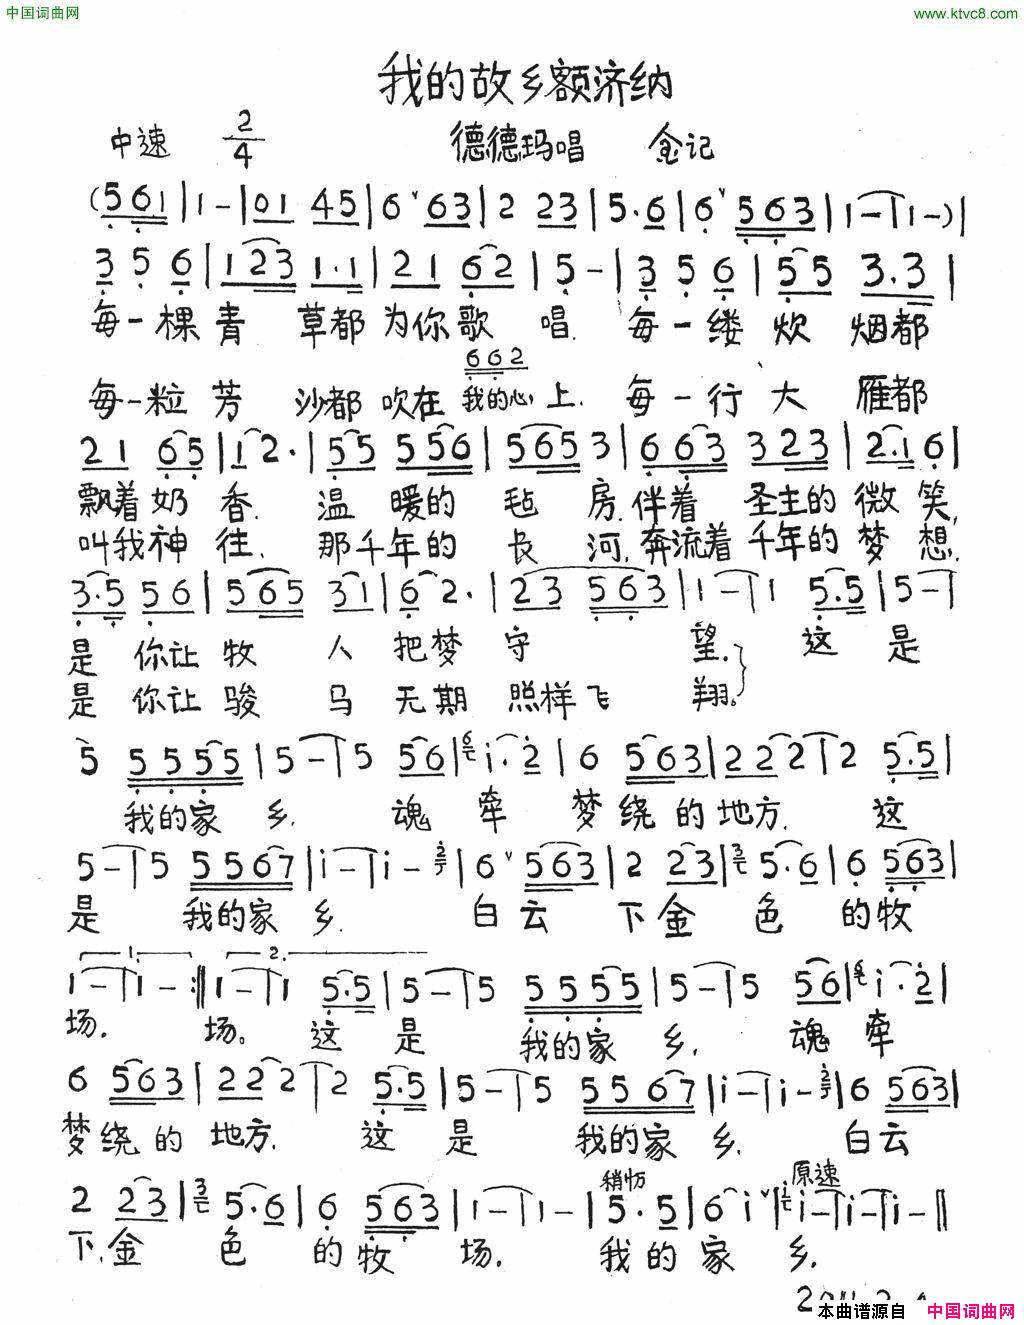 中国词曲网
www.ktvc8.com
我的故乡额济纳
中速 2/4 德德玛唱 金记
(5 6 1 | 1 - | 0 1 4 5 | 6 ˅ 6 3 | 2 2 3 | 5 · 6 | 6 ˅ 5 6 3 | 1 - | 1 - ) |
3 5 6 | 1 2 3 1 · 1 | 2 1 6 2 | 5 - | 3 5 6 | 5 5 3 · 3 |
每一棵青 草都为你歌 唱. 每一缕炊 烟都
6 6 2
每一粒芳 沙都吹在我的心上. 每一行大 雁都
2 1 6 5 | 1 2 · | 5 5 5 5 6 | 5 6 5 3 | 6 6 3 3 2 3 | 2 · 1 6 |
飘着奶香. 温 暖的 毡 房.伴着 圣主的微笑,
叫我神往. 那千年的 长 河,奔流着千年的梦想.
3 · 5 5 6 | 5 6 5 3 1 | 6 2 · | 2 3 5 6 3 | 1 - | 1 5 · 5 | 5 - |
是 你让牧 人 把梦 守 望. 这是
是 你让骏 马 无期 照样飞 翔。
5 5 5 5 5 | 5 - | 5 5 6 | i · 2 | 6 5 6 3 | 2 2 2 2 | 2 5 · 5 |
我的家 乡. 魂 牵 梦绕的地方. 这
5 - | 5 5 5 6 7 | i - | i - | 6 ˅ 5 6 3 | 2 2 3 | 5 · 6 | 6 5 6 3 |
是 我的家 乡. 白云 下金 色 的牧
1. 2.
1 - | 1 - :‖ 1 - | 1 5 · 5 | 5 - | 5 5 5 5 5 | 5 - | 5 5 6 | i · 2 |
场. 场。 这 是 我的家 乡. 魂 牵
6 5 6 3 | 2 2 2 | 2 5 · 5 | 5 - | 5 5 5 6 7 | i - | i - | 6 5 6 3 |
梦绕 的 地方. 这 是 我的家 乡. 白云
稍忾 原速
2 2 3 | 5 · 6 | 6 5 6 3 | 1 - | 1 - | 5 · 5 | 6 i ˅ | i - | i - | i - ‖
下.金 色 的牧 场. 我的家 乡.
本曲谱源自 中国词曲网